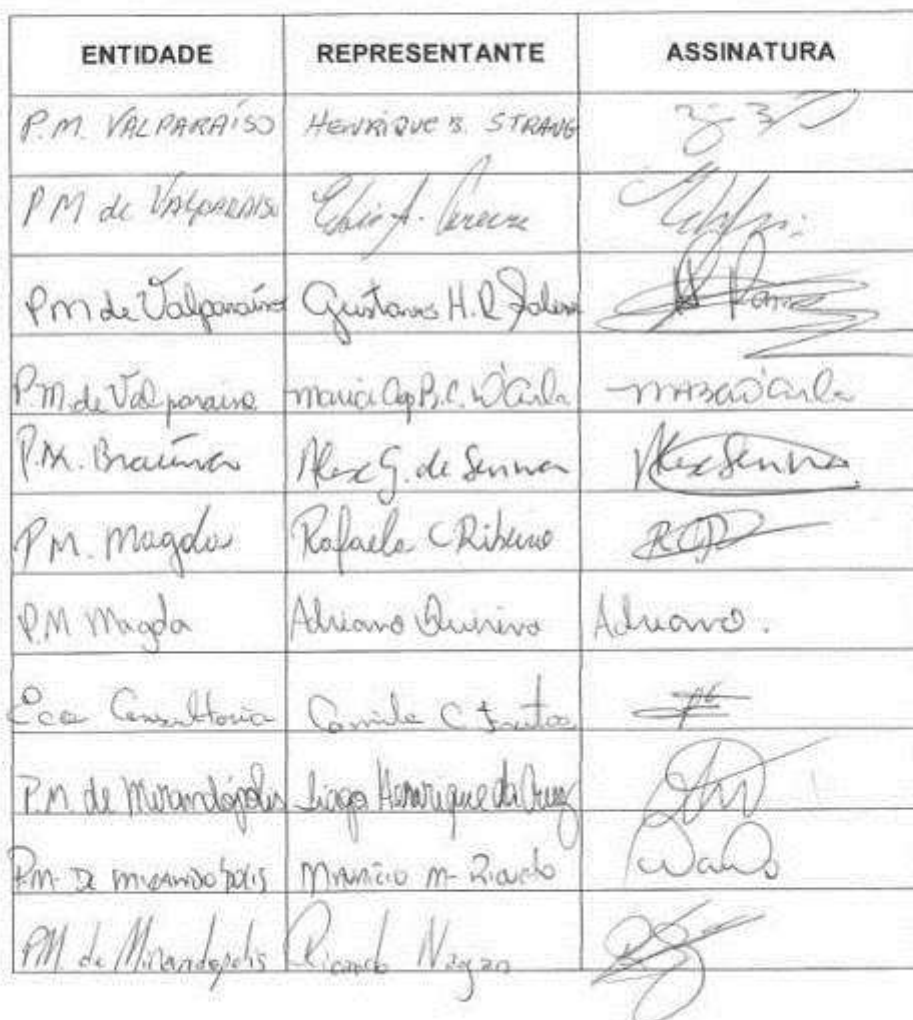 ENTIDADE REPRESENTANTE ASSINATURA
P.M. VALPARAÍSO HENRIQUE B. STRANG
PM de VALPARAISO Elvio A.
PM de Valparaíso Gustavo H. R.
P.M. de Valparaiso Maria Ap. B. C. D'Carla
P.M. Braúna Alex G. de Senna Alex Senna
P.M. Magda Rafaela C Ribeiro RCR
P.M Magda Adriano Quirino Adriano.
Consultoria Camila C Freitas
P.M. de Mirandópolis Tiago Henrique da Cruz
P.M. DE MIRANDÓPOLIS MAURICIO M. Ricardo
PM. de Mirandopolis Ricardo Nagao